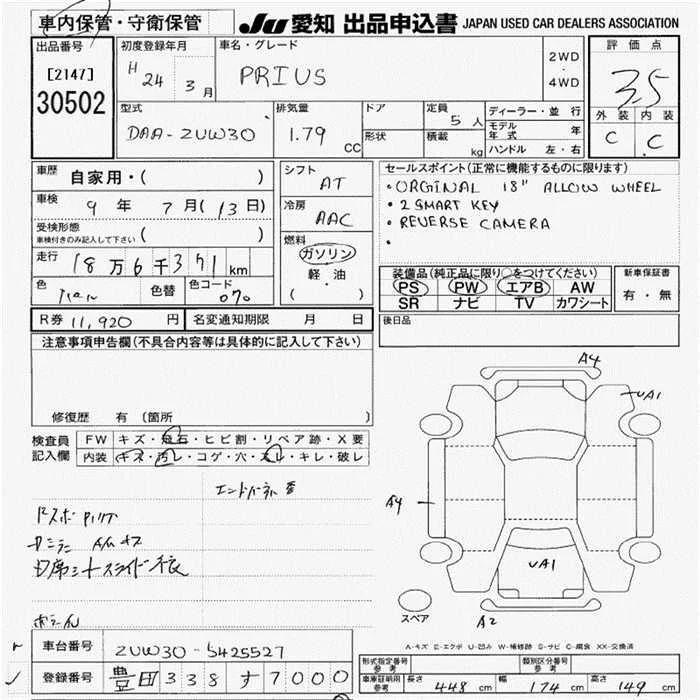 車内保管・守衛保管
JU 愛知 出品申込書 JAPAN USED CAR DEALERS ASSOCIATION
出品番号
[2147]
30502
初度登録年月
H 24 3月
車名・グレード
PRIUS
2WD
・
4WD
評価点
3.5
外装 内装
C C
型式
DAA-ZUW30
排気量
1.79 CC
ドア
形状
定員
5人
積載
kg
ディーラー・並行
モデル年式 年
ハンドル 左・右
車歴
自家用・( )
車検
9年 7月(13日)
受検形態
車検付きのみ記入して下さい ( )
走行
18万6千371km
色
色替
色コード
070
シフト
AT
冷房
AAC
燃料
ガソリン
軽・油
( )
セールスポイント(正常に機能するものに限ります)
・ORGINAL 18" ALLOW WHEEL
・2 SMART KEY
・REVERSE CAMERA
・
装備品(純正品に限り○をつけてください)
PS PW エアB AW
SR ナビ TV カワシート
新車保証書
有・無
R券 11,920 円
名変通知期限 月 日
後日品
注意事項申告欄(不具合内容等は具体的に記入して下さい)
修復歴 有 (箇所 )
検査員記入欄
FW キズ・飛石・ヒビ割・リペア跡・X要
内装 キズ・汚レ・コゲ・穴・スレ・キレ・破レ
A4
UA1
A4
UA1
A2
スペア
A-キズ E-エクボ U-凹み W-補修跡 S-サビ C-腐食 XX-交換済
車台番号
ZUW30-5425527
登録番号
豊田 338 す 7000
形式指定番号 参考
類別区分番号 参考
車庫証明用 参考
長さ 448 cm 幅 174 cm 高さ 149 cm